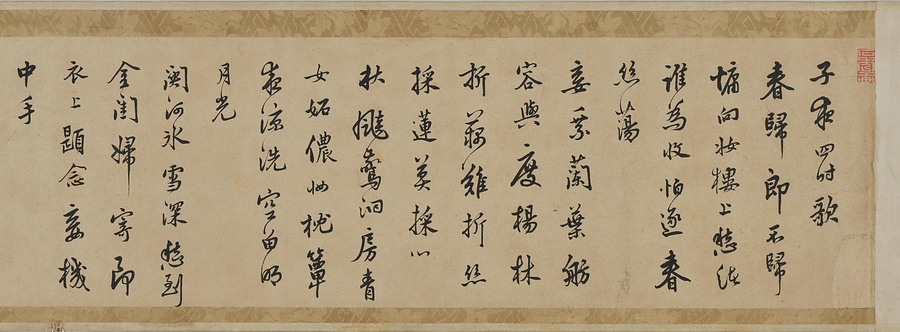 子夜四时歌
春歸郎不歸
慵向妝樓上愁
誰為收怕逐春
絲蕩
妾乘蘭葉舫
容與度楊林
折藕難折絲
採蓮莫採心
秋飈驚洞房青
女妬儂枕簟
夜涼洗空留明
月光
關河氷雪深愁到
金閨婦寄郎
衣上題念妾機
中手